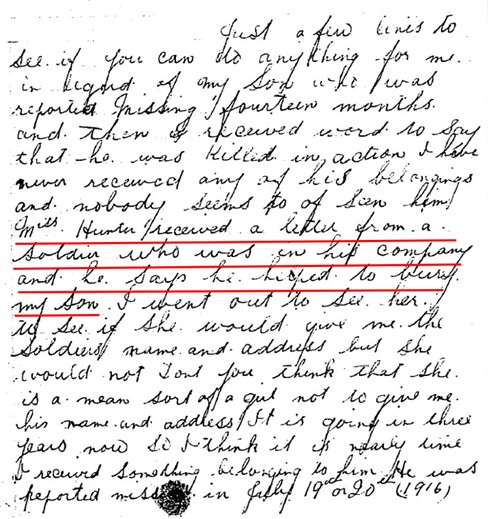 Just a few lines to
see if you can do anything for me.
in regard of my Son who was
reported Missing fourteen months
and then I received word to say
that he was Killed in action I have
never received any of his belongings
and nobody seems to of seen him
Miss Hunter received a letter from a
Soldier who was in his company
and he says he helped to bury
my Son. I went out to see her.
to see if she would give me the
Soldiers name and address but she
would not Dont you think that she
is a mean sort of a gut not to give me
his name and address It is going in three
years now So I think it is nearly time
I received something belonging to him He was
reported in July 19th or 20th (1916)